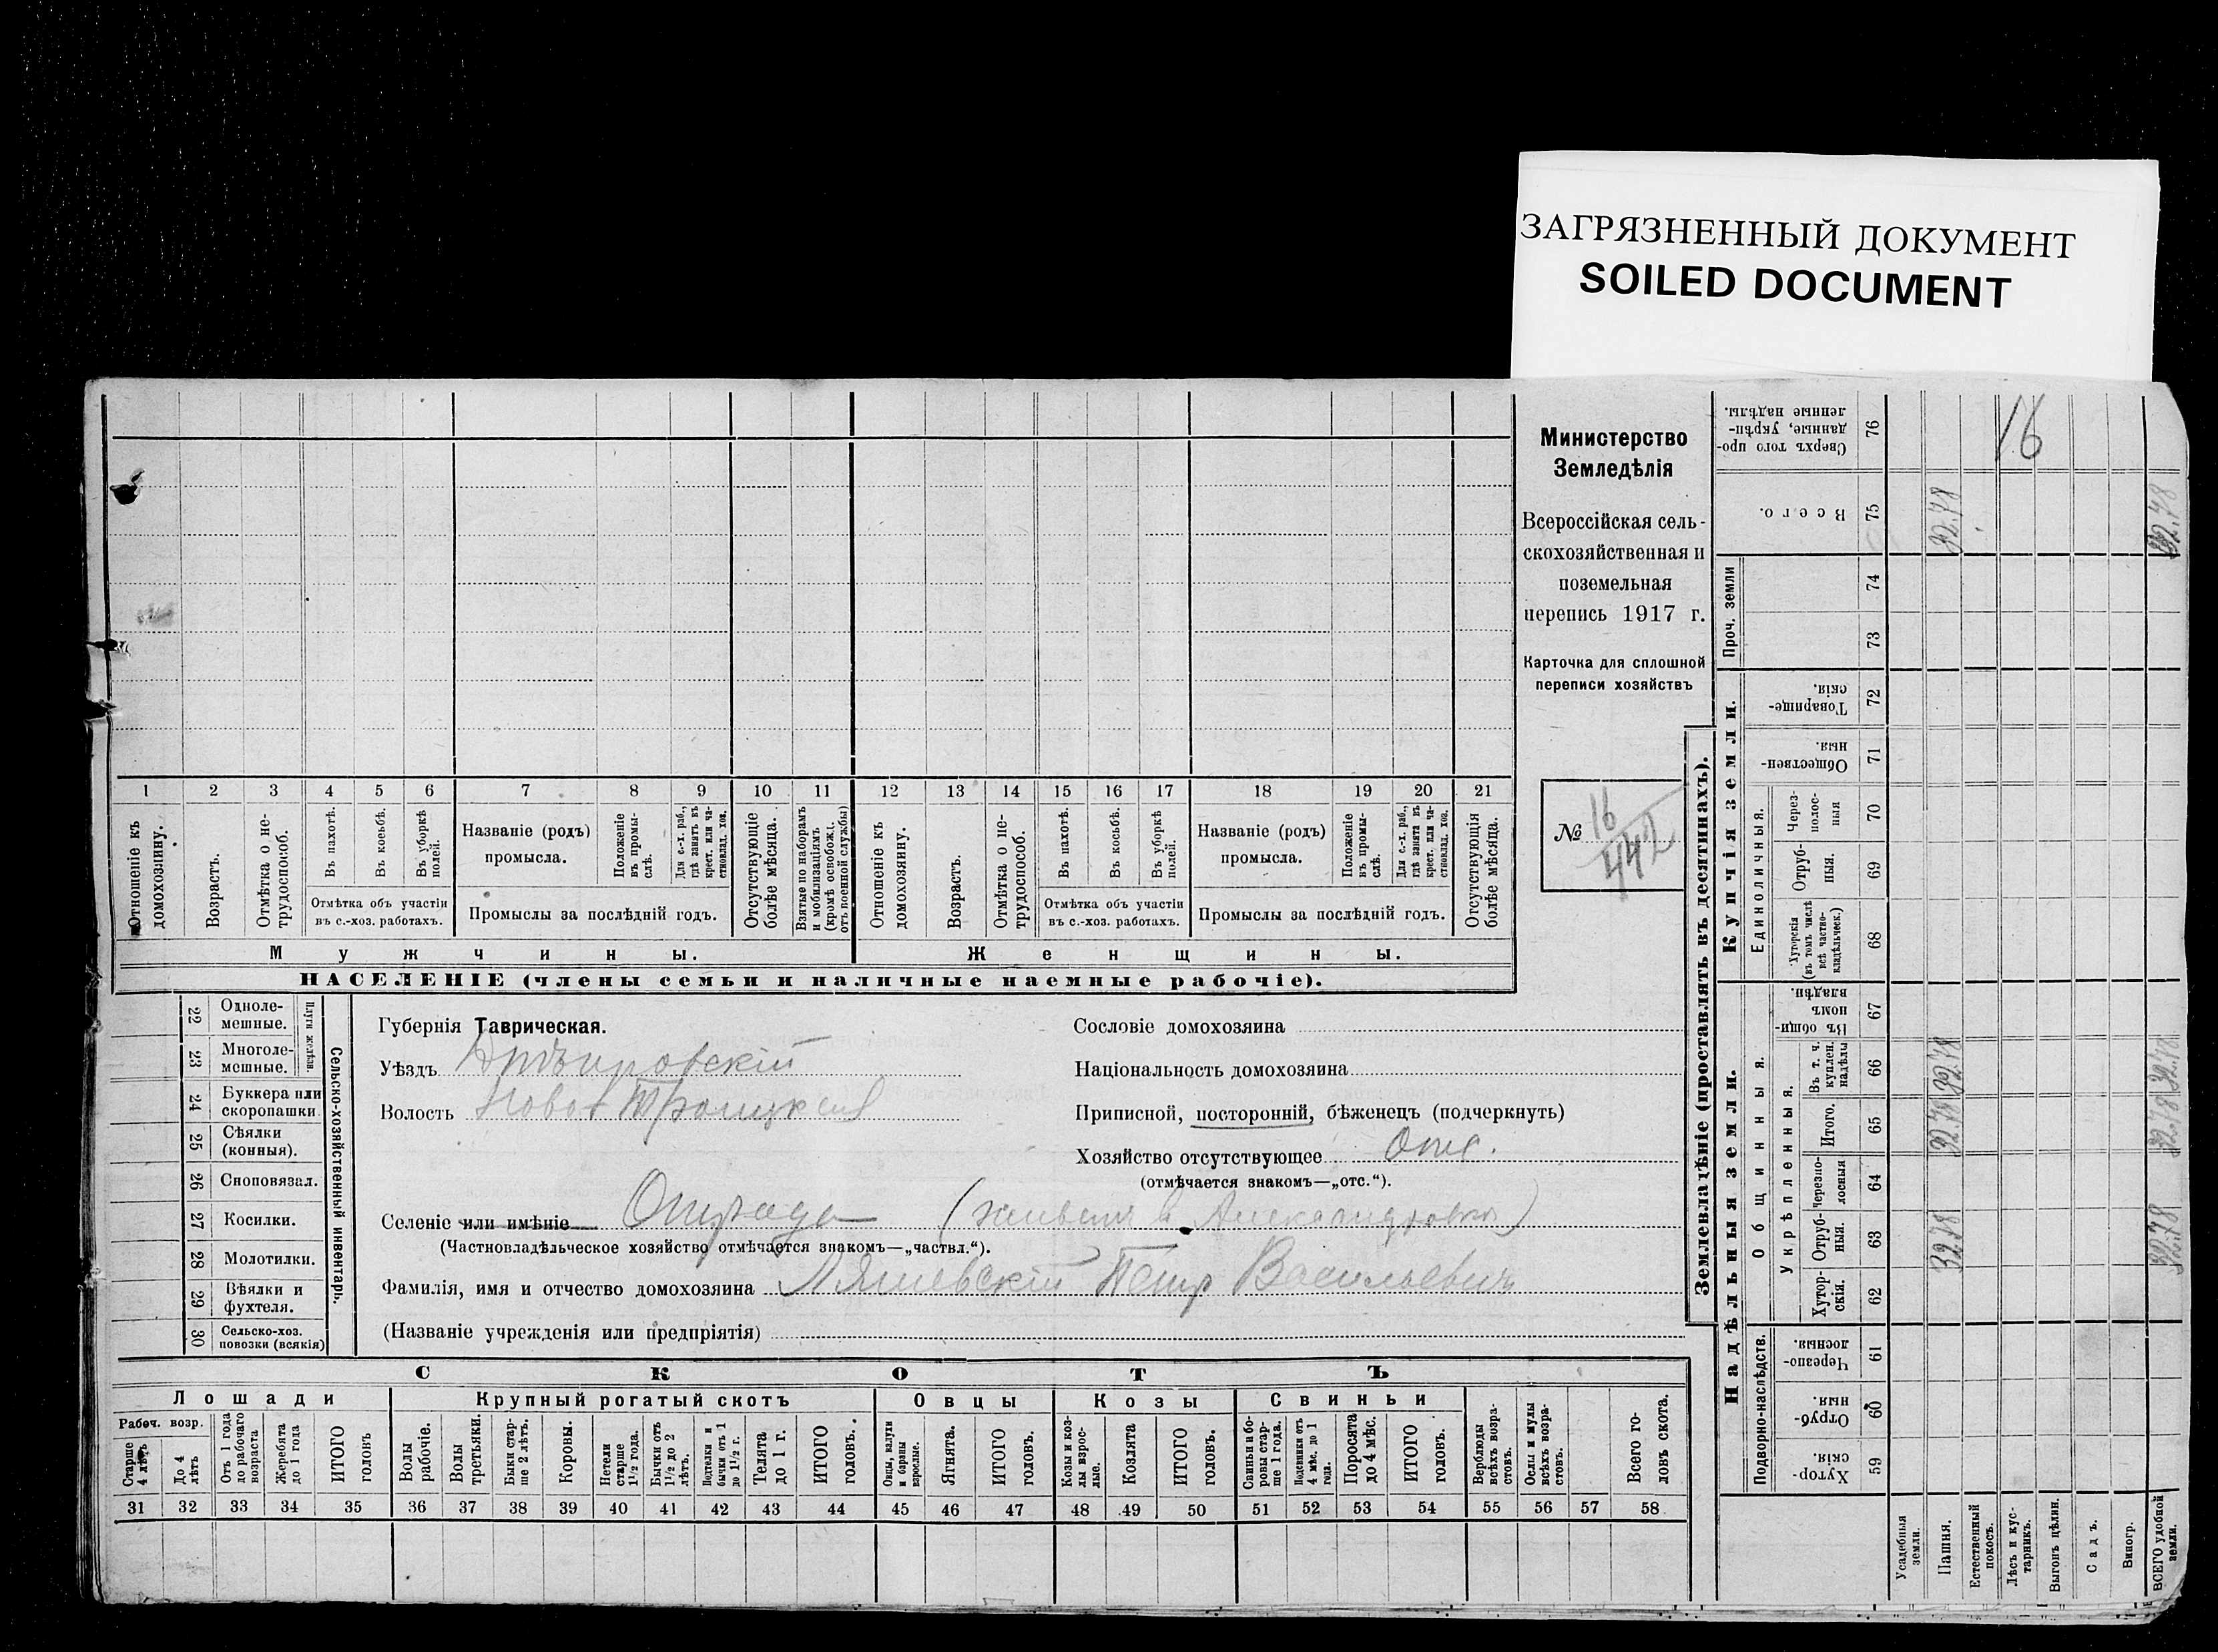 ЗАГРЯЗНЕННЫЙ ДОКУМЕНТ
SOILED DOCUMENT
Министерство
Земледѣлія
Всероссійская сель-
скохозяйственная и
поземельная
перепись 1917 г.
Карточка для сплошной
переписи хозяйствъ
№ 16
442
1 2 3 4 5 6 7 8 9 10 11 12 13 14 15 16 17 18 19 20 21
Отношеніе къ домохозяину.
Возрастъ.
Отмѣтка о не-трудоспособ.
Въ пахотѣ.
Въ косьбѣ.
Въ уборкѣ полей.
Отмѣтка объ участіи
въ с.-хоз. работахъ.
Названіе (родъ)
промысла.
Положеніе въ промы-слѣ.
Для с.-х. раб., гдѣ занятъ въ крест. или ча-стновлад. хоз.
Промыслы за послѣдній годъ.
Отсутствующіе болѣе мѣсяца.
Взятые по наборамъ и мобилизаціямъ (кромѣ освобожд. отъ военной службы)
Отношеніе къ домохозяину.
Возрастъ.
Отмѣтка о не-трудоспособ.
Въ пахотѣ.
Въ косьбѣ.
Въ уборкѣ полей.
Отмѣтка объ участіи
въ с.-хоз. работахъ.
Названіе (родъ)
промысла.
Положеніе въ промы-слѣ.
Для с.-х. раб., гдѣ занята въ крест. или ча-стновлад. хоз.
Промыслы за послѣдній годъ.
Отсутствующія болѣе мѣсяца.
Мужчины.
Женщины.
НАСЕЛЕНІЕ (члены семьи и наличные наемные рабочіе).
22 Одноле-мешные.
23 Многоле-мешные.
Плуги желѣзн.
24 Буккера или скоропашки
25 Сѣялки (конныя).
26 Сноповязал.
27 Косилки.
28 Молотилки.
29 Вѣялки и фухтеля.
30 Сельско-хоз. повозки (всякія)
Сельско-хозяйственный инвентарь.
Губернія Таврическая.
Уѣздъ Днѣпровскій
Волость Ново Троицкая
Сословіе домохозяина
Національность домохозяина
Приписной, посторонній, бѣженецъ (подчеркнуть)
Хозяйство отсутствующее Отс.
(отмѣчается знакомъ—„отс.“).
Селеніе или имѣніе Отрада (живетъ в Александровкѣ)
(Частновладѣльческое хозяйство отмѣчается знакомъ—„частвл.“).
Фамилія, имя и отчество домохозяина Ляшевскій Петр Васильевич
(Названіе учрежденія или предпріятія)
СКОТЪ
Лошади
Крупный рогатый скотъ
Овцы
Козы
Свиньи
Рабоч. возр.
Старше 4 лѣтъ
До 4 лѣтъ
Отъ 1 года до рабочаго возраста
Жеребята до 1 года
ИТОГО головъ
Волы рабочіе.
Волы третьяки.
Быки стар-ше 2 лѣтъ.
Коровы.
Нетели старше 1½ года.
Бычки отъ 1½ до 2 лѣтъ.
Подтелки и бычки отъ 1 до 1½ г.
Телята до 1 г.
ИТОГО головъ.
Овцы, валухи и бараны взрослые.
Ягнята.
ИТОГО головъ.
Козы и коз-лы взрос-лые.
Козлята
ИТОГО головъ.
Свиньи и бо-ровы стар-ше 1 года.
Подсвинки отъ 4 мѣс. до 1 года.
Поросята до 4 мѣс.
ИТОГО головъ.
Верблюды всѣхъ возра-стовъ.
Ослы и мулы всѣхъ возра-стовъ.
Всего го-ловъ скота.
31 32 33 34 35 36 37 38 39 40 41 42 43 44 45 46 47 48 49 50 51 52 53 54 55 56 57 58
Землевладѣніе (проставлять въ десятинахъ).
Надѣльныя земли.
Купчія земли.
Проч. земли
Подворно-наслѣдств.
Общинныя.
Укрѣпленныя.
Единоличныя.
Хутор-скія. 59
Отруб-ныя. 60
Черезпо-лосныя. 61
Хутор-скія. 62
Отруб-ныя. 63
Черезпо-лосныя 64
Итого. 65
Въ т. ч. куплен. надѣлы 66
Въ общин-номъ владѣн. 67
Хуторскія (въ томъ числѣ всѣ частно-владѣльческ.) 68
Отруб-ныя. 69
Через-полос-ныя 70
Обществен-ныя. 71
Товарище-скія. 72
73
74
Всего. 75
Сверхъ того про-данные, укрѣп-ленные надѣлы. 76
Усадебныя земли.
Пашня.
Естественный покосъ.
Лѣсъ и кус-тарникъ.
Выгонъ цѣлин.
Садъ.
Виногр.
ВСЕГО удобной земли.
32.78 32.78 32.78 32.78
32.78 32.78 32.78 32.78
16